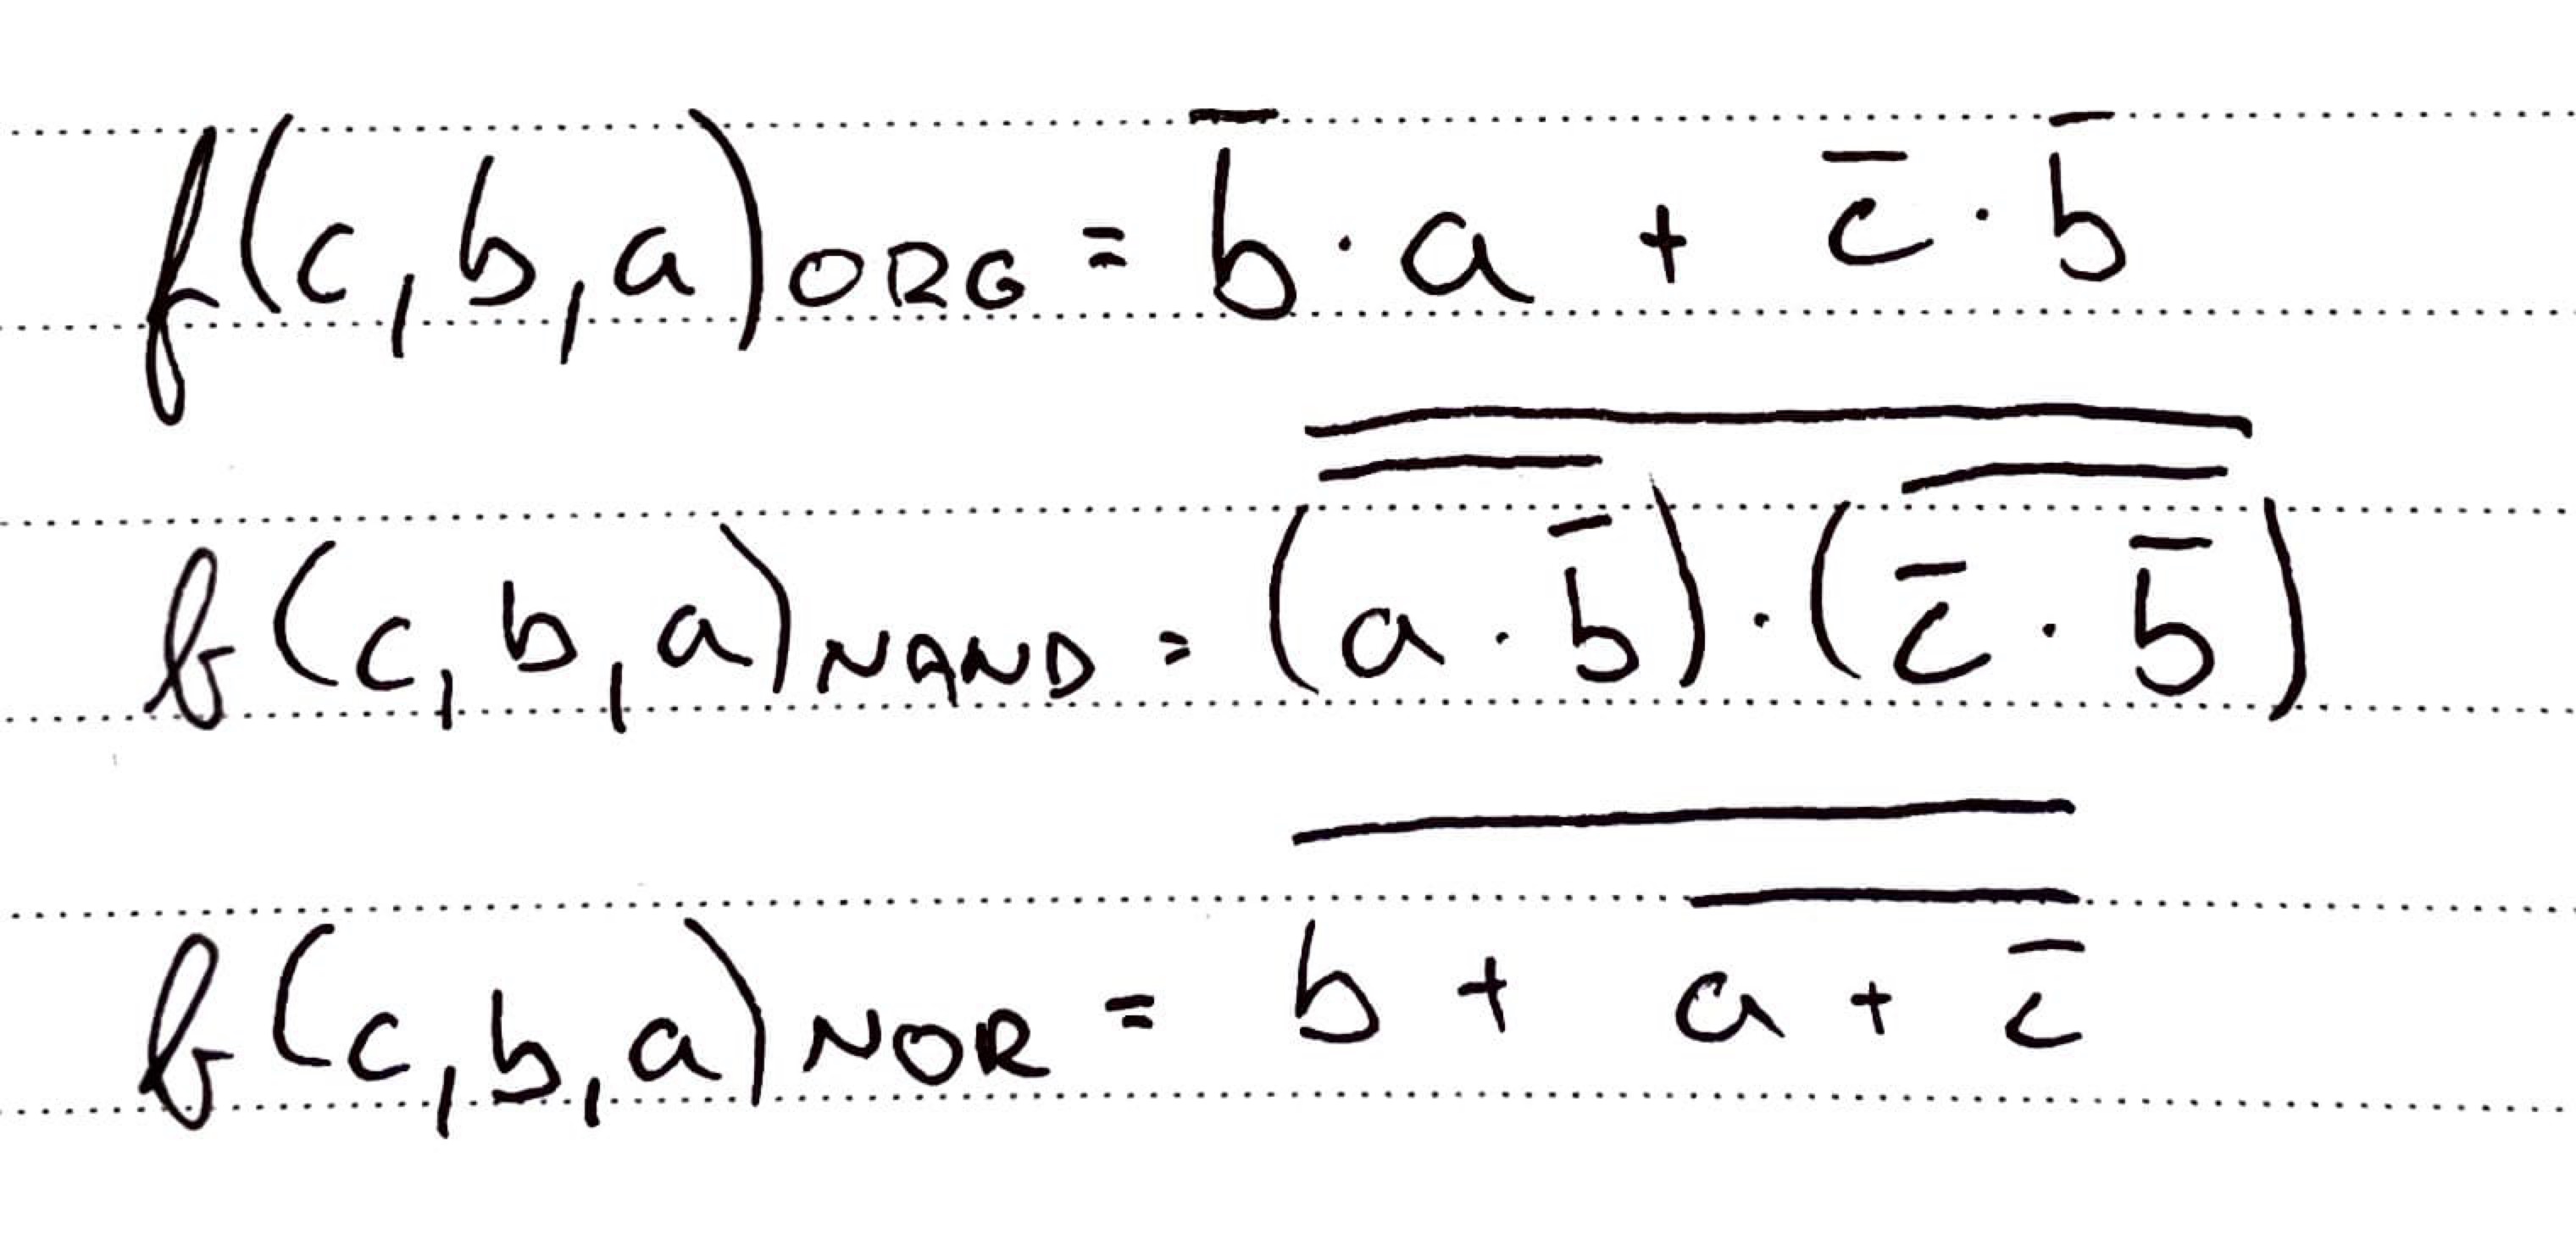 f(c,b,a)ORG = b̅·a + c̅·b̅
f(c,b,a)NAND = \overline{\overline{(a·b̅)}·\overline{(c̅·b̅)}}
f(c,b,a)NOR = \overline{b + \overline{a + c̅}}